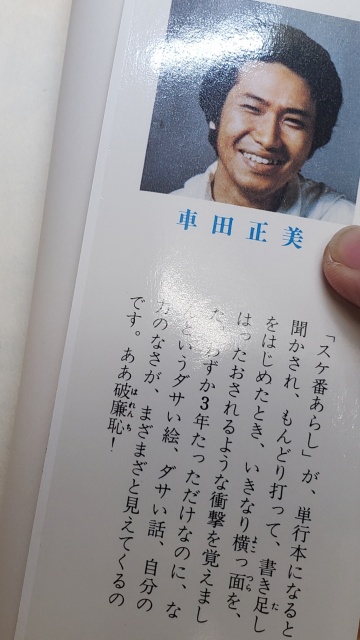 車田正美
「スケ番あらし」が、単行本になると
聞かされ、もんどり打って、書き足し
をはじめたとき、いきなり横っ面を、
はったおされるような衝撃を覚えまし
た。わずか3年たっただけなのに、な
というダサい絵、ダサい話、自分の
力のなさが、まざまざと見えてくるの
です。ああ破廉恥!